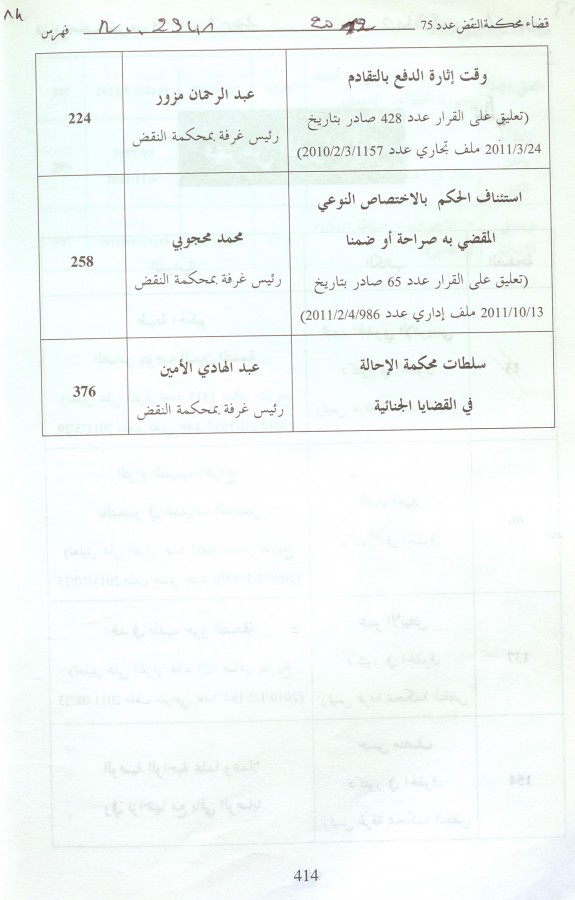 قضاء محكمة النقض عدد 75
2012
فهرس
وقت إثارة الدفع بالتقادم
(تعليق على القرار عدد 428 صادر بتاريخ
2011/3/24 ملف تجاري عدد 2010/2/3/1157)
عبد الرحمان مزور
رئيس غرفة بمحكمة النقض
224
استئناف الحكم بالاختصاص النوعي
المقضي به صراحة أو ضمنا
(تعليق على القرار عدد 65 صادر بتاريخ
2011/10/13 ملف إداري عدد 2011/2/4/986)
محمد محجوبي
رئيس غرفة بمحكمة النقض
258
سلطات محكمة الإحالة
في القضايا الجنائية
عبد الهادي الأمين
رئيس غرفة بمحكمة النقض
376
414